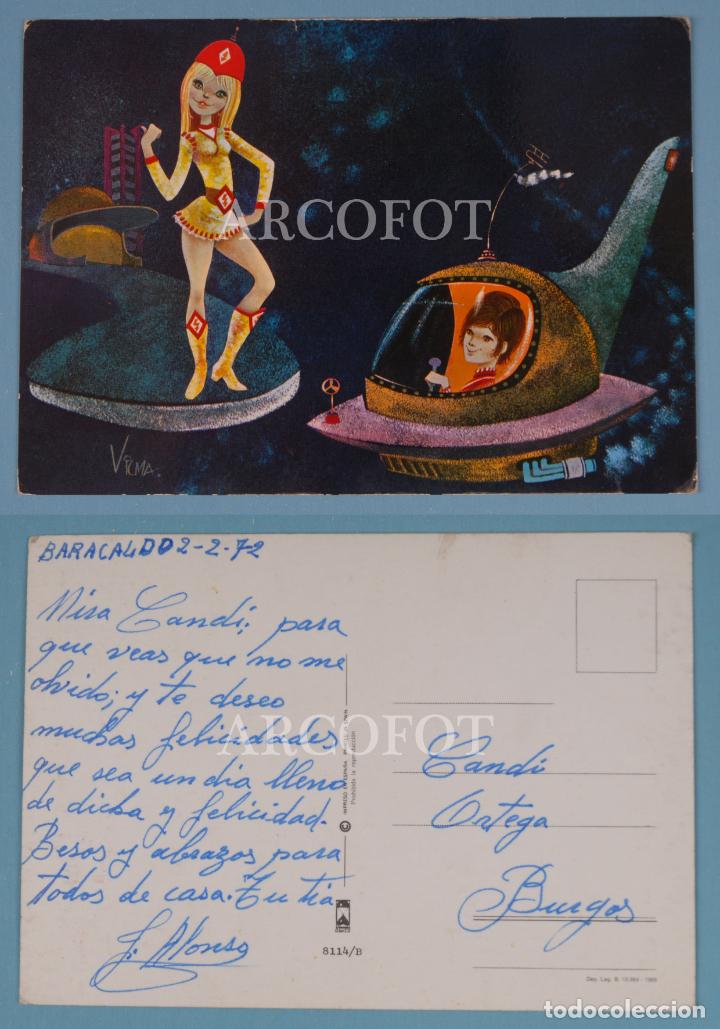 ARCOFOT
VILMA.
BARACALDO 2-2-72
Mira Candi; para
que veas que no me
olvido; y te deseo
muchas felicidades
que sea un dia lleno
de dicha y felicidad.
Besos y abrazos para
todos de casa. Tu tia
J. Alonso
ARCOFOT
IMPRESO EN ESPAÑA
Prohibida la reproducción
©
8114/B
Candi
Ortega
Burgos
todocoleccion